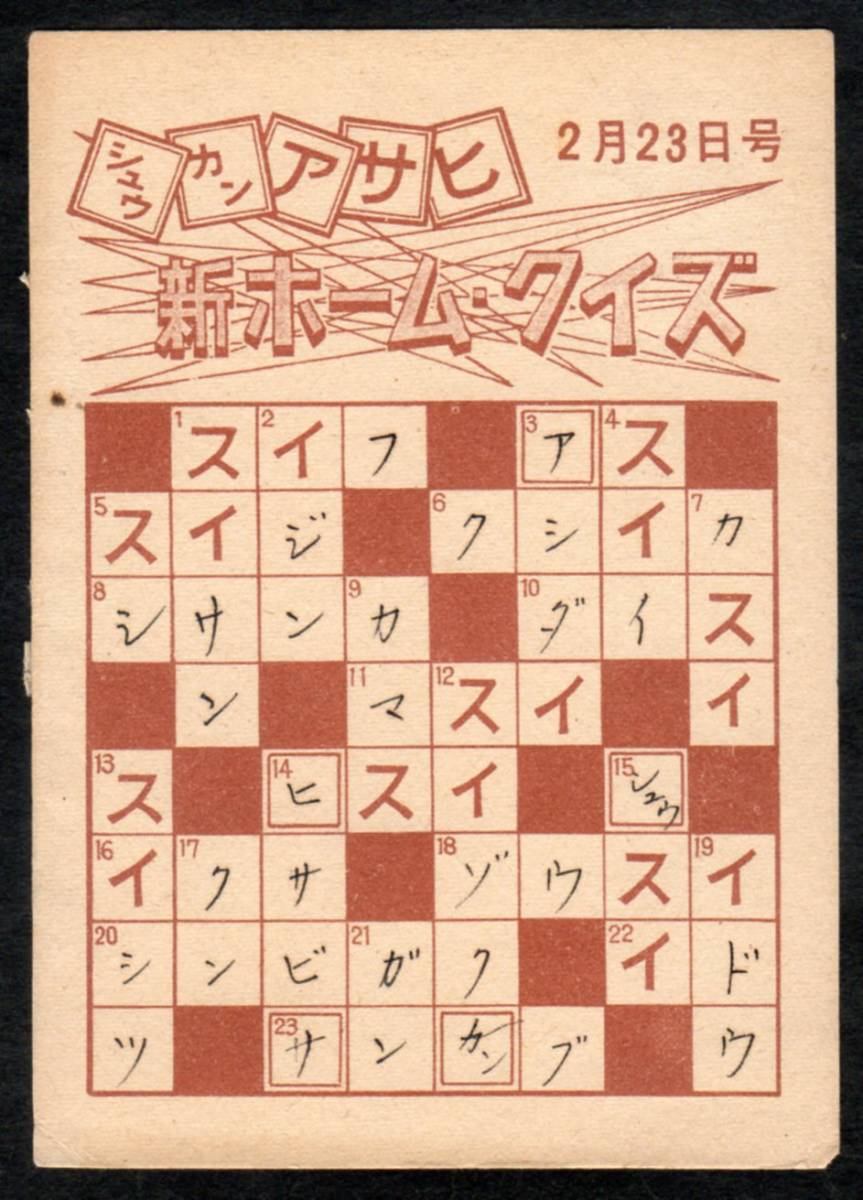 シュウカンアサヒ 2月23日号
新ホーム・クイズ
1ス 2イ フ 3ア 4ス
5ス イ ジ 6ク シ イ 7カ
8シ サ ン 9カ 10ダ イ ス
ン 11マ 12ス イ イ
13ス 14ヒ ス イ 15シュウ
16イ 17ク サ 18ゾ ウ ス 19イ
20シ ン ビ 21ガ ク 22イ ド
ツ 23サ ン カン ブ ウ